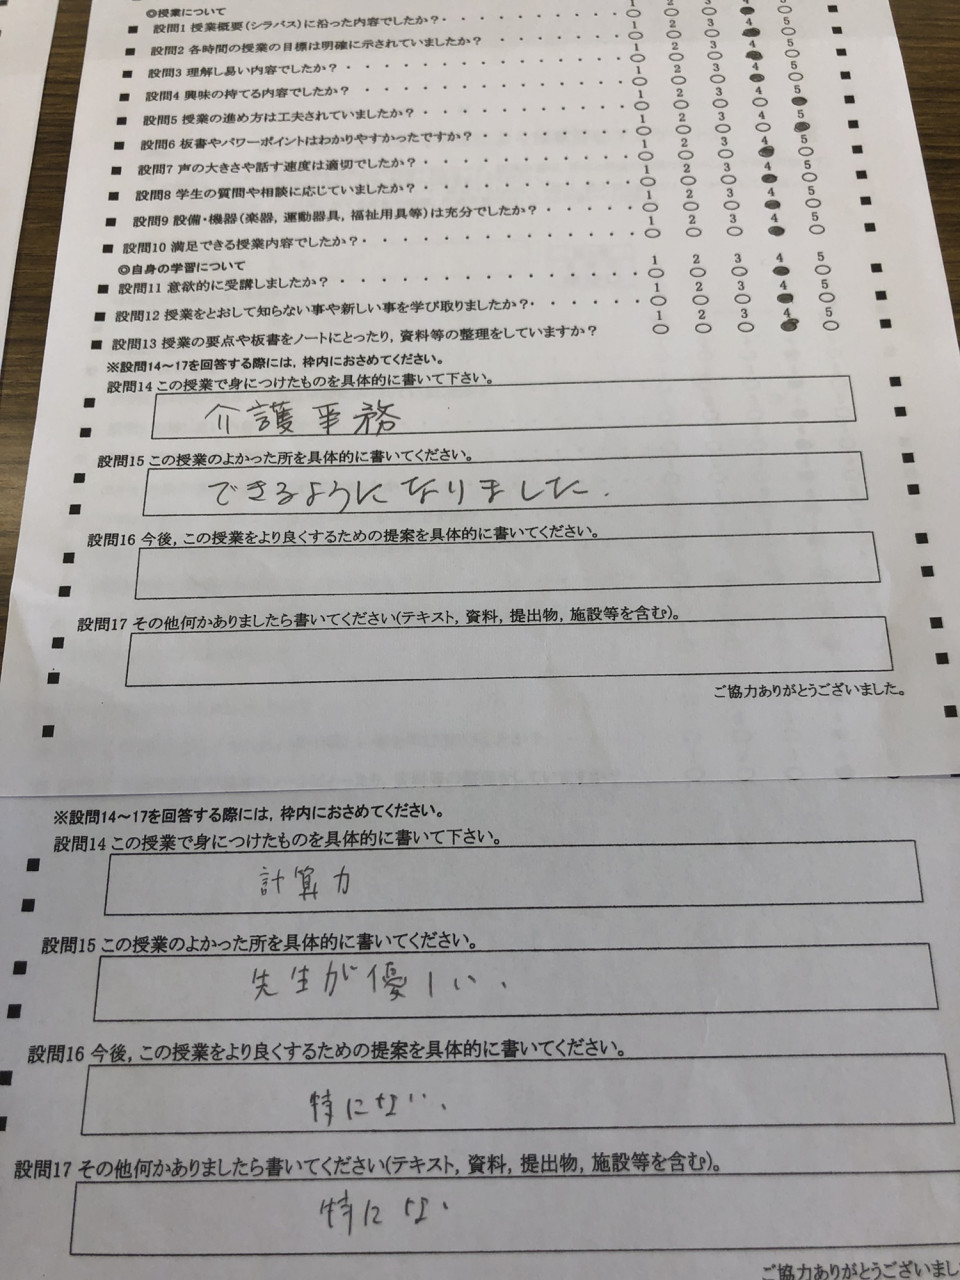 ◎授業について
設問1 授業概要(シラバス)に沿った内容でしたか?・ 1 2 3 4 5
設問2 各時間の授業の目標は明確に示されていましたか? 1 2 3 4 5
設問3 理解し易い内容でしたか?・・・・・・・・・・・・・ 1 2 3 4 5
設問4 興味の持てる内容でしたか?・・・・・・・・・・・・ 1 2 3 4 5
設問5 授業の進め方は工夫されていましたか?・・・・・・・・ 1 2 3 4 5
設問6 板書やパワーポイントはわかりやすかったですか?・・・・・ 1 2 3 4 5
設問7 声の大きさや話す速度は適切でしたか?・・・・・・・・ 1 2 3 4 5
設問8 学生の質問や相談に応じていましたか?・・・・・・・・ 1 2 3 4 5
設問9 設備・機器(楽器, 運動器具, 福祉用具等)は充分でしたか?・・・ 1 2 3 4 5
設問10 満足できる授業内容でしたか?・・・・・・・・・・・ 1 2 3 4 5
◎自身の学習について
設問11 意欲的に受講しましたか?・・・・・・・・・・・・・ 1 2 3 4 5
設問12 授業をとおして知らない事や新しい事を学び取りましたか?・・・・ 1 2 3 4 5
設問13 授業の要点や板書をノートにとったり, 資料等の整理をしていますか? 1 2 3 4 5
※設問14~17を回答する際には, 枠内におさめてください。
設問14 この授業で身につけたものを具体的に書いて下さい。
介護事務
設問15 この授業のよかった所を具体的に書いてください。
できるようになりました.
設問16 今後, この授業をより良くするための提案を具体的に書いてください。
設問17 その他何かありましたら書いてください(テキスト, 資料, 提出物, 施設等を含む)。
ご協力ありがとうございました。
※設問14~17を回答する際には, 枠内におさめてください。
設問14 この授業で身につけたものを具体的に書いて下さい。
計算力
設問15 この授業のよかった所を具体的に書いてください。
先生が優しい.
設問16 今後, この授業をより良くするための提案を具体的に書いてください。
特にない.
設問17 その他何かありましたら書いてください(テキスト, 資料, 提出物, 施設等を含む)。
特にない
ご協力ありがとうございまし